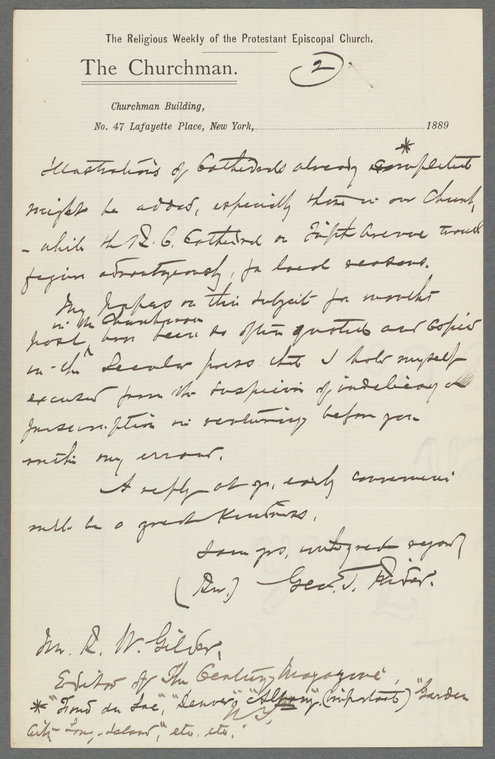 The Religious Weekly of the Protestant Episcopal Church.
The Churchman.
2
Churchman Building,
No. 47 Lafayette Place, New York, 1889
illustrations of Cathedrals already completed *
might be added, especially those in our Church,
- while the R. C. Cathedral on Fifth Avenue would
figure advantageously, for local reasons.
My papers on this subject for months
in the Churchman
past, have been so often quoted and copied
in the Secular press that I hold myself
excused from the suspicion of indelicacy or
presumption in venturing before you
with my errand.
A reply at yr. early convenience
will be a great kindness.
I am yrs, with great regard
(Rev.) Geo. T. Rider.
Mr. R. W. Gilder,
Editor of The Century Magazine,
* "Fond du Lac," "Denver," "Albany (important) "Garden
N.Y.
City - Long-Island", etc. etc.